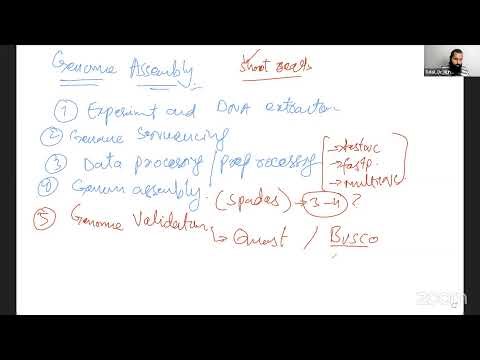 Genome Assembly
short reads
① Experiment and DNA extraction
② Genome Sequencing
③ Data processing / preprocessing
→ fastqc
→ fastp
→ multiqc
④ Genom assembly. (Spades) → 3-4 ?
⑤ Genome Validation → Quast / Busco
zoom